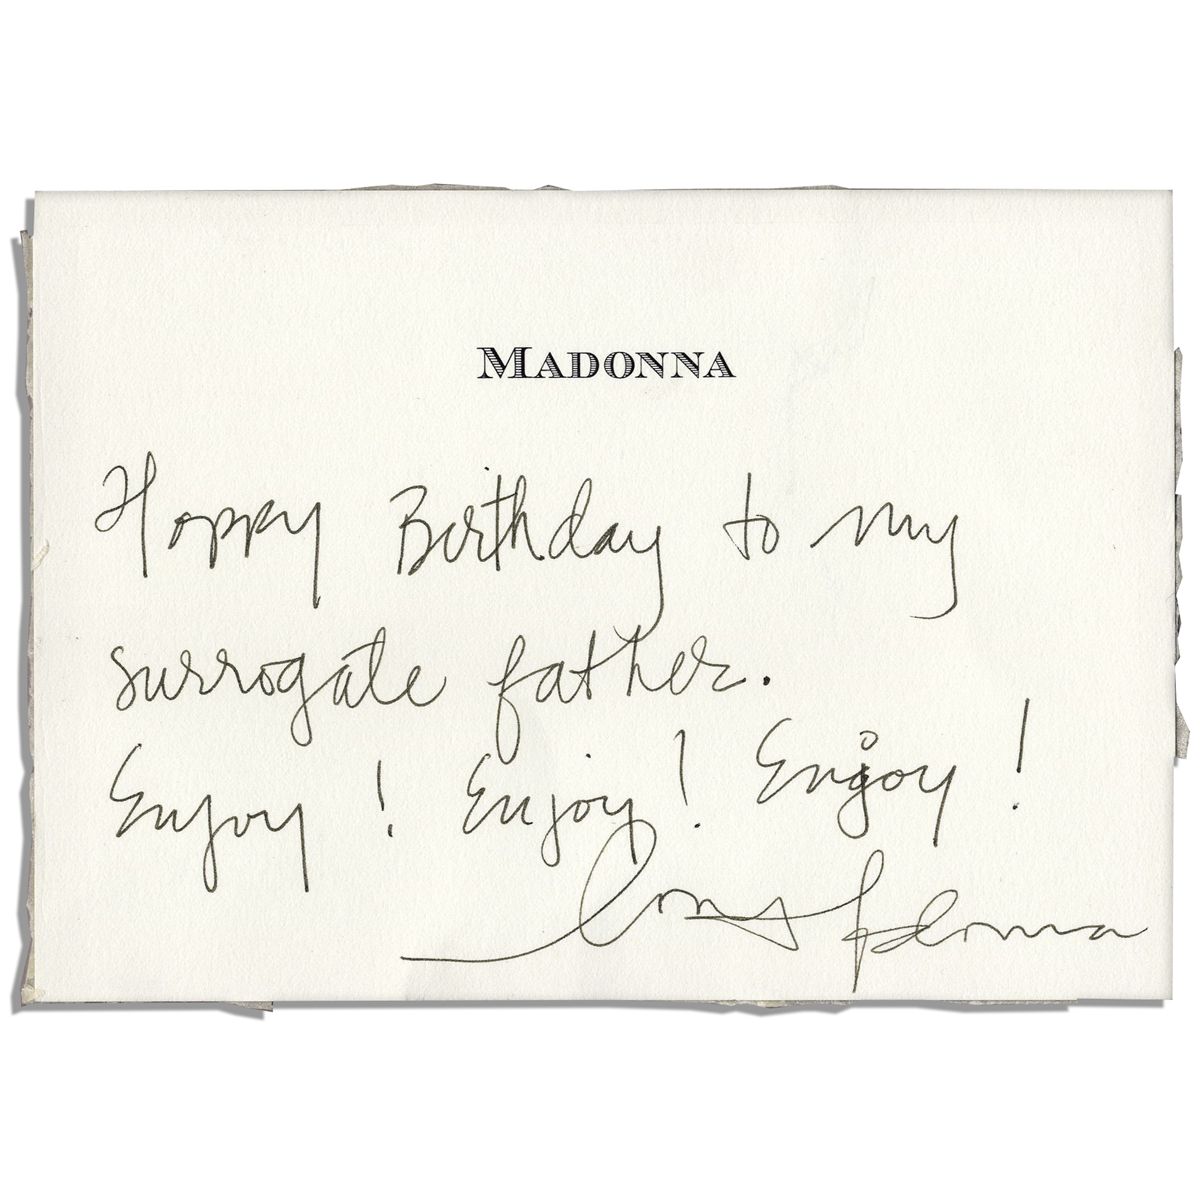 MADONNA
Happy Birthday to my
surrogate father.
Enjoy! Enjoy! Enjoy!